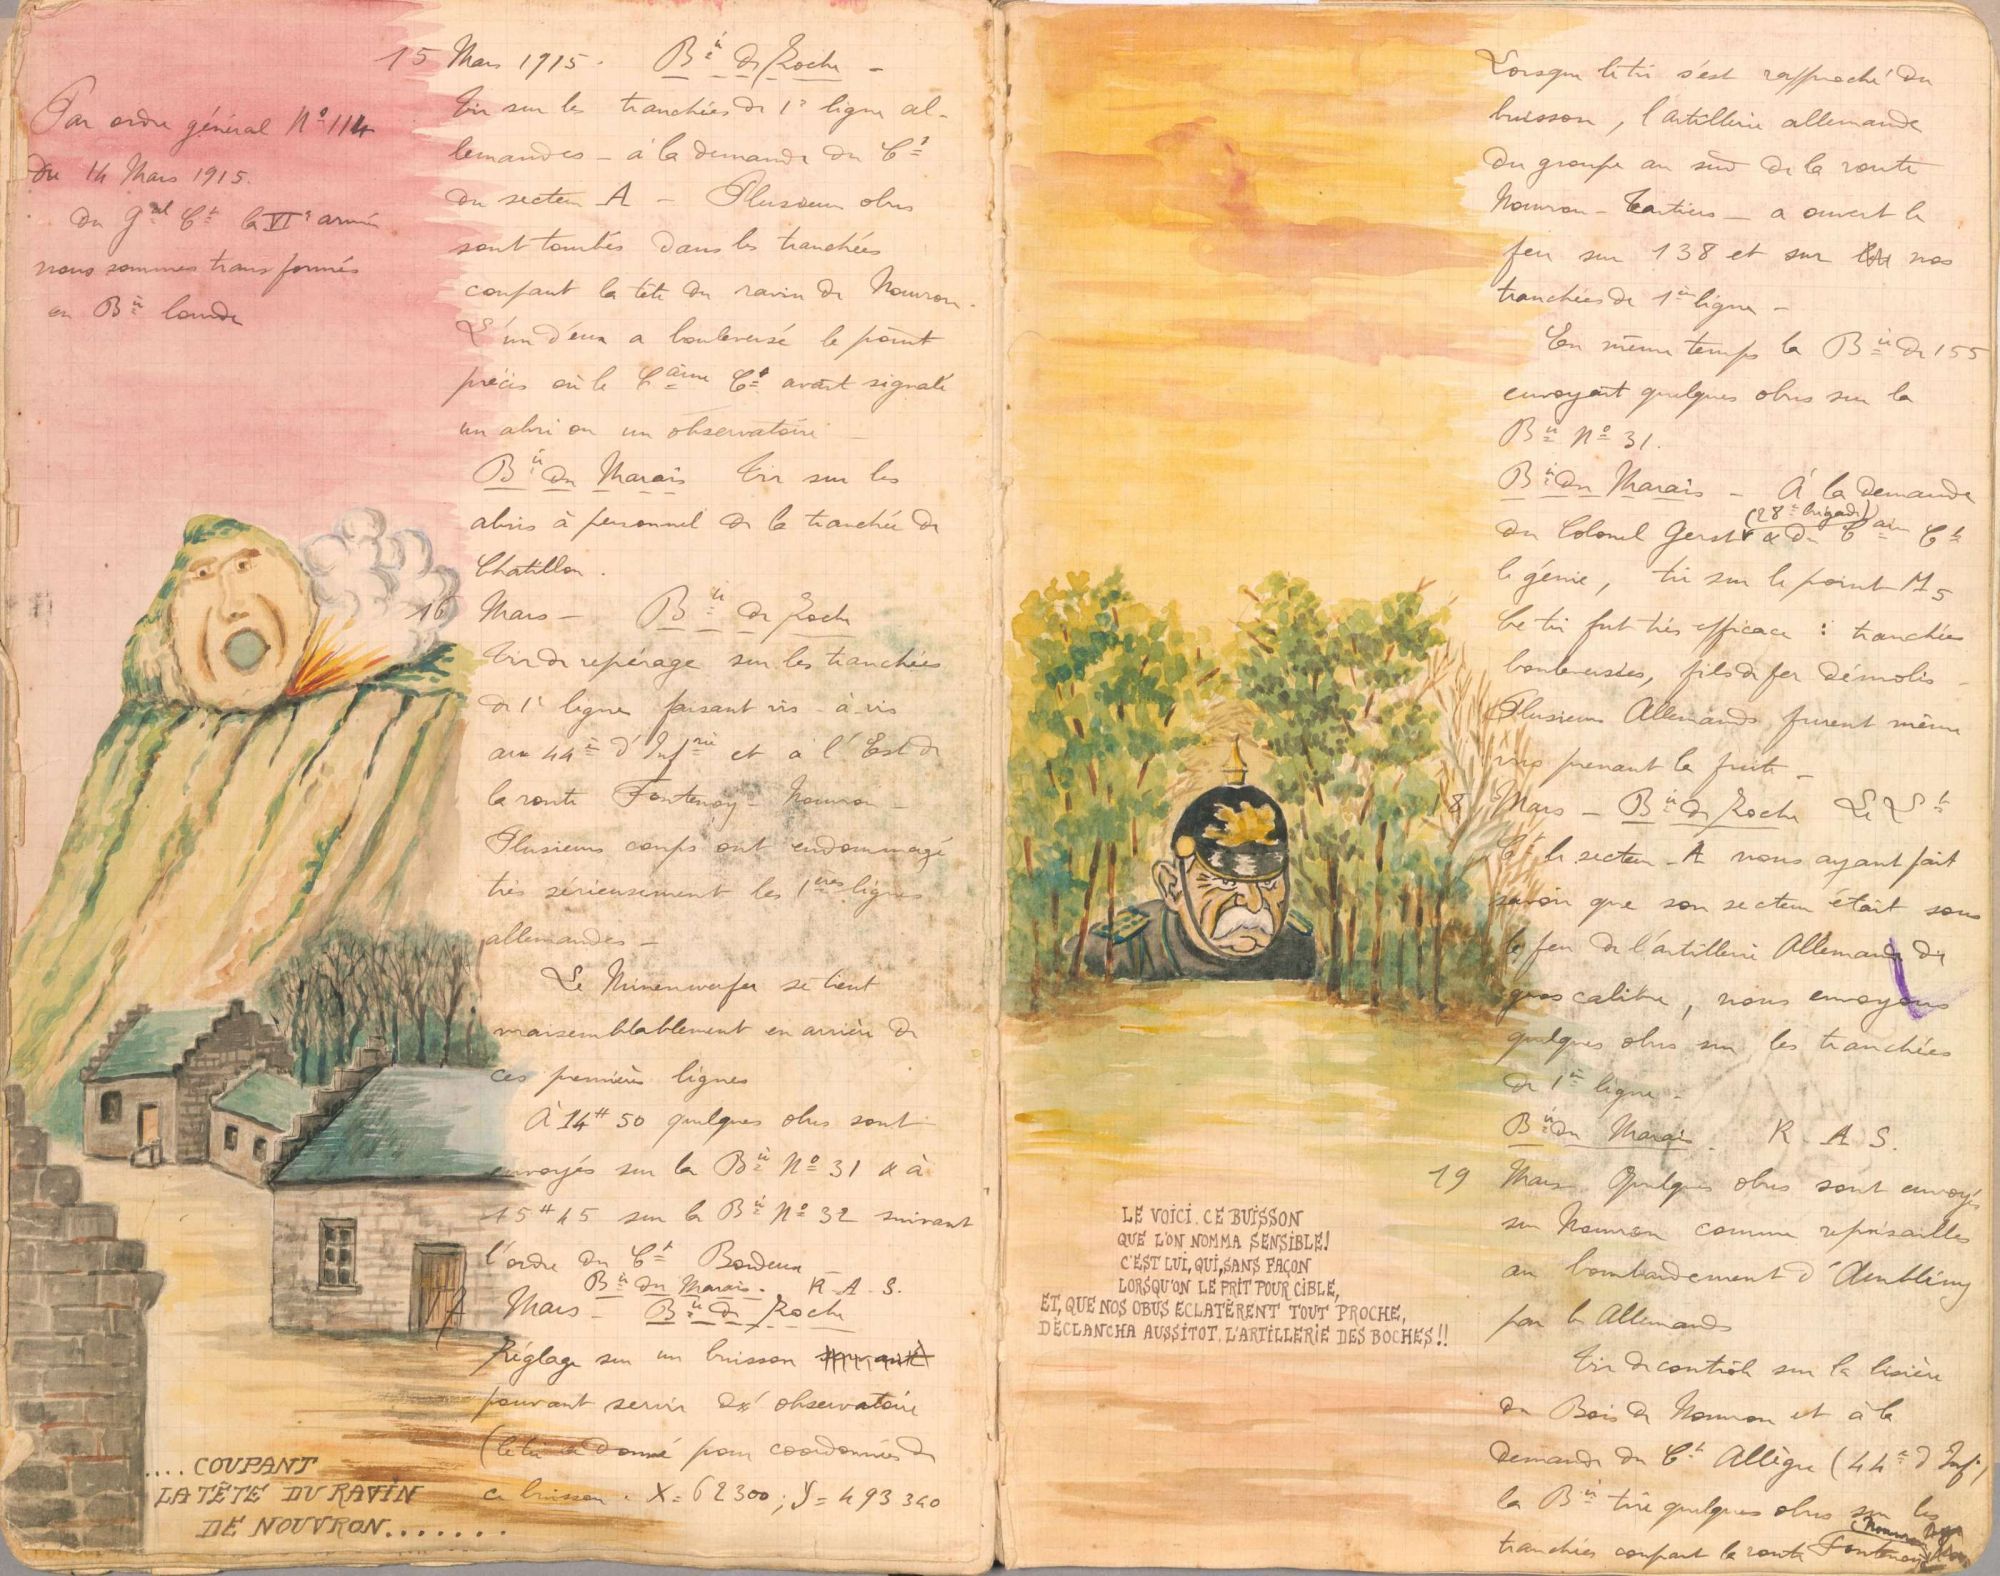 Par ordre général Nº 114
du 14 Mars 1915.
du Gal Ct la VIe armée
nous sommes transformés
en Bie lourde
15 Mars 1915. Bie de Roche –
Tir sur les tranchées de 1e ligne al-
lemandes – à la demande du Ct
du secteur A – Plusieurs obus
sont tombés dans les tranchées
coupant la tête du ravin de Nouvron.
L'un d'eux a bouleversé le point
précis où le Caine Ct avait signalé
un abri ou un observatoire –
Bie du Marais Tir sur les
abris à personnel de la tranchée de
Chatillon.
16 Mars – Bie de Roche
Tir de repérage sur les tranchées
de 1e ligne faisant vis-à-vis
au 44e d'Infrie et à l'Est de
la route Fontenoy – Nouvron –
Plusieurs coups ont endommagé
très sérieusement les 1ères lignes
allemandes –
Le Minenwerfer se tient
vraisemblablement en arrière de
ces premières lignes
À 14H50 quelques obus sont
envoyés sur la Bie Nº 31 & à
15H45 sur la Bie Nº 32 suivant
l'ordre du Ct
Bie du Marais. R. A. S.
17 Mars – Bie de Roche
Réglage sur un buisson
pouvant servir d'observatoire
(le tir a donné pour coordonnées de
ce buisson : X = 62300 ; Y = 493340
.... COUPANT
LA TÊTE DU RAVIN
DE NOUVRON.......
Lorsque le tir s'est rapproché du
buisson, l'artillerie allemande
du groupe au sud de la route
Nouvron – Tartiers – a ouvert le
feu sur 138 et sur nos
tranchées de 1ère ligne –
En même temps la Bie de 155
envoyait quelques obus sur la
Bie Nº 31.
Bie du Marais – À la demande
du Colonel Gerst (28e brigade) & du Caine Ct
le génie, tir sur le point M5
Le tir fut très efficace : tranchées
bouleversées, fils de fer démolis –
Plusieurs Allemands furent même
vus prenant la fuite –
18 Mars – Bie de Roche Le Lt
Ct le secteur A nous ayant fait
savoir que son secteur était sous
le feu de l'artillerie Allemande de
gros calibre, nous envoyons
quelques obus sur les tranchées
de 1ère ligne –
Bie du Marais. R. A. S.
19 Mars Quelques obus sont envoyés
sur Nouvron comme représailles
au bombardement d'Ambleny
par les Allemands
Tir de contrôle sur la lisière
du Bois de Nouvron et à la
demande du Ct Allègre (44e d'Inf.)
la Bie tire quelques obus sur les
tranchées coupant la route Fontenoy
LE VOICI. CE BUISSON
QUE L'ON NOMMA SENSIBLE!
C'EST LUI, QUI, SANS FAÇON
LORSQU'ON LE PRIT POUR CIBLE,
ET, QUE NOS OBUS ECLATÈRENT TOUT PROCHE,
DÉCLANCHA AUSSITOT, L'ARTILLERIE DES BOCHES!!